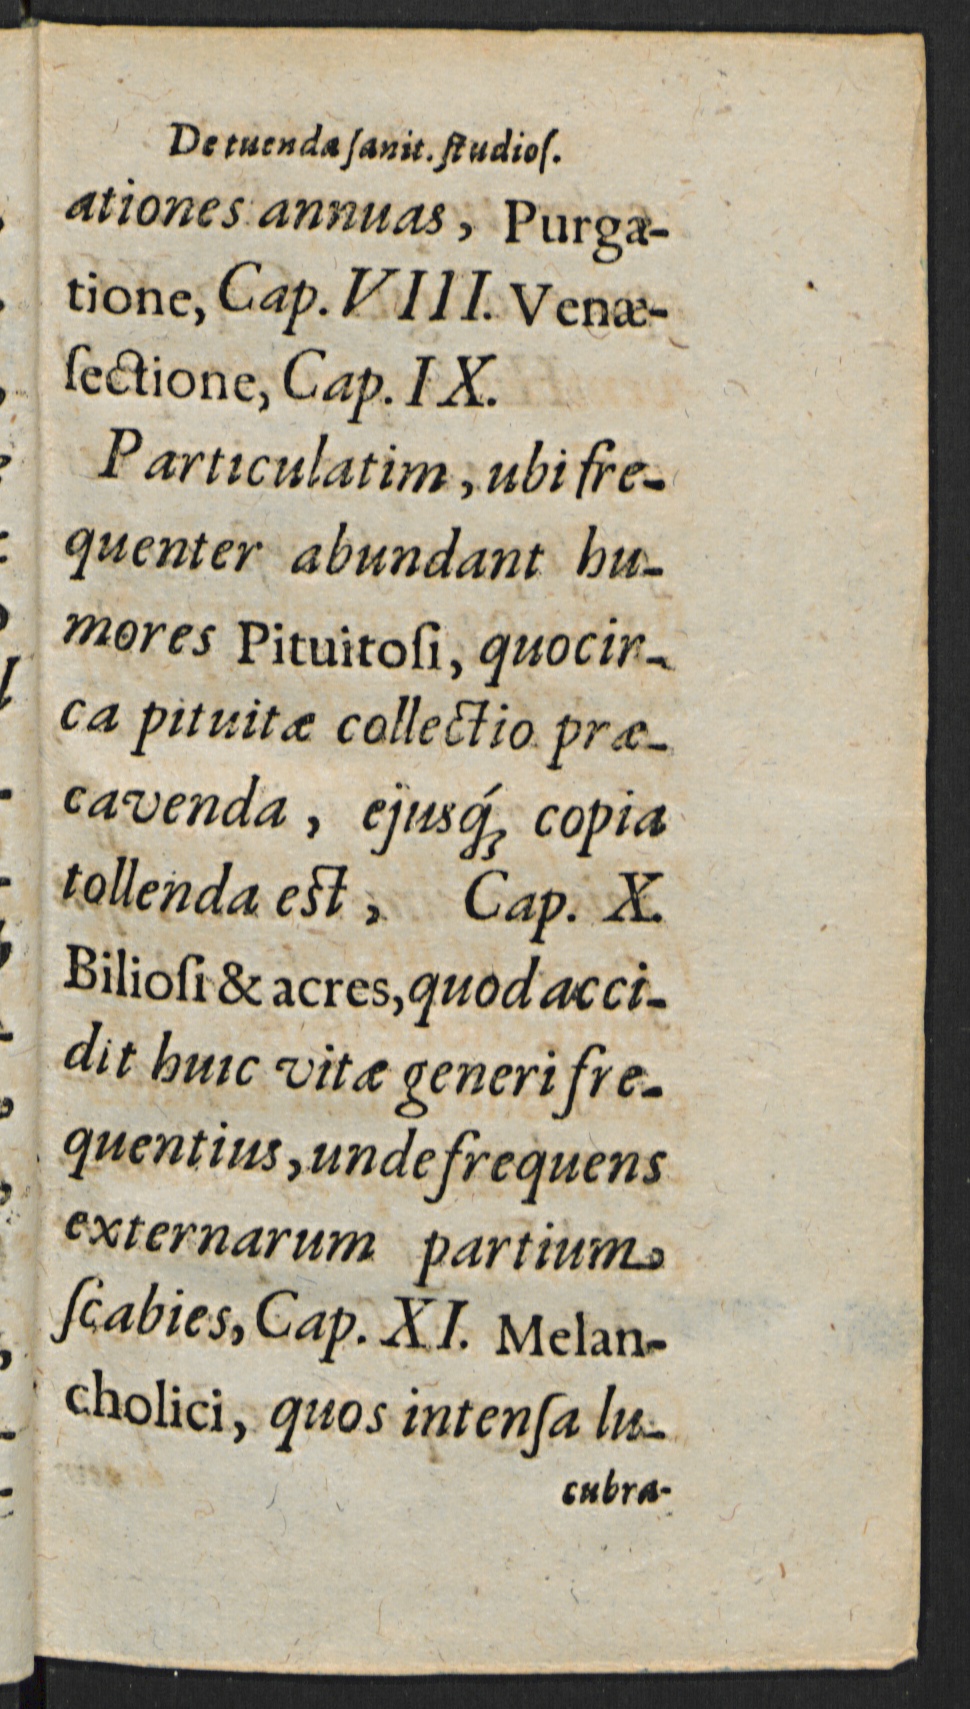 De tuenda ſanit. ſtudioſ.
ationes annuas, Purga-
tione, Cap. VIII. Venæ-
ſectione, Cap. IX.
Particulatim, ubi fre-
quenter abundant hu-
mores Pituitoſi, quocir-
ca pituitæ collectio præ-
cavenda, ejusq́; copia
tollenda est, Cap. X.
Bilioſi & acres, quod acci-
dit huic vitæ generi fre-
quentius, unde frequens
externarum partium
ſcabies, Cap. XI. Melan-
cholici, quos intenſa lu-
cubra-